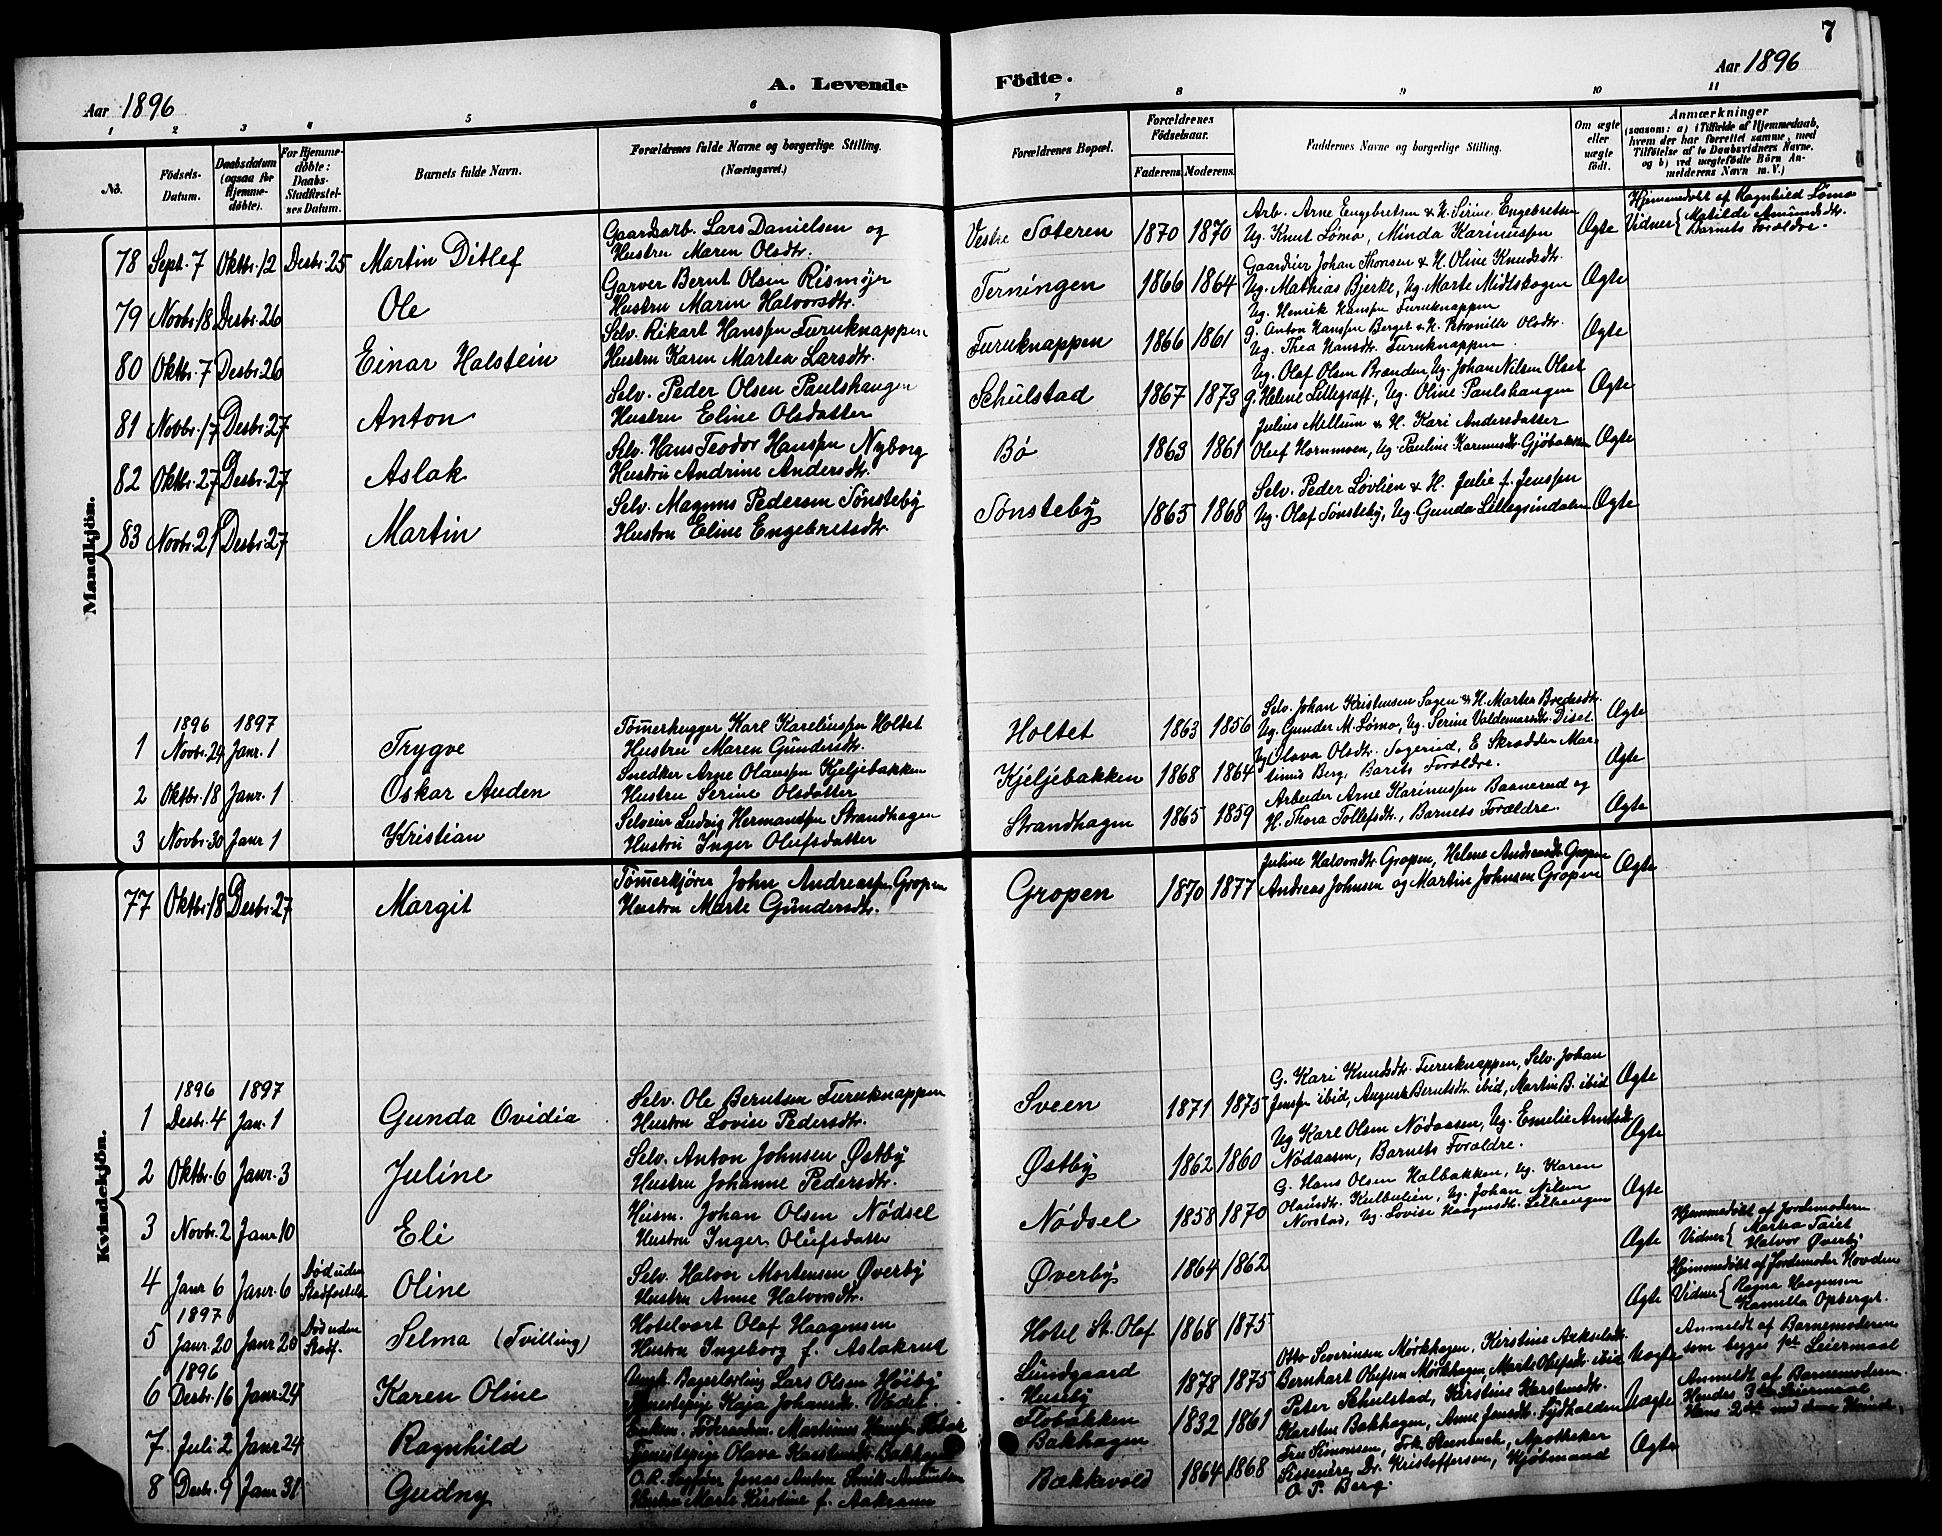 7
Aar 1896
A. Levende Födte.
Aar 1896
1 2 3 4 5 6 7 8 9 10 11
No.
Födsels-Datum.
Daabsdatum (ogsaa for Hjemme-döbte).
For Hjemme-döbte: Daabs-Stadfæstel-ses Datum.
Barnets fulde Navn.
Forældrenes fulde Navne og borgerlige Stilling. (Næringsvei.)
Forældrenes Bopæl.
Forældrenes Födselsaar.
Faderens Moderens
Faddernes Navne og borgerlige Stilling.
Om ægte eller uægte födt.
Anmærkninger
(saasom: a) i Tilfælde af Hjemmedaab, hvem der har forrettet samme, med Tilföielse af to Daabsvidners Navne. og b) ved uægtefödte Börn An-melderens Navn m. V.)
Mandkjön.
78 Septr. 7 Oktbr. 12 Desbr. 25 Martin Ditlef
Gaardarb. Lars Danielsen og
Hustru Maren Olsdtr.
Vestre Sæteren 1870 1870
Arb. Arne Engebretsen & H. Serine Engebretsen
Ug. Knut Lømo, Minda Karinussen
Ægte
Hjemmedøbt af Ragnhild Lømo
Vidner { Matilde Amundsdtr.
Barnets Forældre.
79 Novbr. 18 Desbr. 26 Ole
Garver Bernt Olsen Rismøyr
Hustru Marin Halvorsdtr.
Terningen 1866 1864
Gaardeier Johan Thonsen & H. Oline Knudsdtr.
Ug. Mathias Bjerke, Ug. Marte Midtskogen
Ægte
80 Oktbr. 7 Desbr. 26 Einar Halstein
Selv. Rikart Hanssen Furuknappen
Hustru Karen Martea Larsdtr.
Furuknappen 1866 1861
Ug. Henrik Hanssen Furuknappen
G. Anton Hanssen Berget & H. Petronille Olsdtr.
Ug. Thea Hansdtr. Furuknappen.
Ægte
81 Novbr. 17 Desbr. 27 Anton
Selv. Peder Olsen Paulshaugen
Hustru Eline Olsdatter
Schulstad 1867 1873
Ug. Olaf Olsen Brænden, Ug. Johan Nilsen Olset
G. Helene Lillegraff, Ug. Oline Paulshaugen
Ægte
82 Oktbr. 27 Desbr. 27 Aslak
Selv. Hans Teodor Hanssen Nyborg
Hustru Andrine Andersdtr.
Bø 1863 1861
Julius Mellum & H. Kari Andersdatter
Oluf Hornmoen, Ug. Pauline Karinusdtr. Gjøbakken
Ægte
83 Novbr. 21 Desbr. 27 Martin
Selv. Magnus Pedersen Tønsteby
Hustru Eline Engebretsdtr.
Tønsteby 1865 1868
Selv. Peder Løvlien & H. Julie f. Jenssen
Ug. Olaf Tønsteby, Ug. Gunda Lillegrindalen
Ægte
1896 1897
1 Novbr. 24 Janr. 1 Trygve
Tømerhugger Karl Kareliussen Holtet
Hustru Maren Gundersdtr.
Holtet 1863 1856
Selv. Johan Kristensen Sagen & H. Martea Bredesdtr.
Ug. Gunder M. Lømo, Ug. Serine Valdemarsdtr. Diset
Ægte
2 Oktbr. 18 Janr. 1 Oskar Auden
Snedker Arne Olaussen Kjeljebakken
Hustru Serine Olsdatter
Kjeljebakken 1868 1864
Ug. Olava Olsdtr. Togerud, E Skrædder Mar-
tinus Berg, Barnets Forældre.
Ægte
3 Novbr. 30 Janr. 1 Kristian
Selveier Ludvig Hermandsen Strandhagen
Hustru Inger Olufsdatter
Strandhagen 1865 1859
Arbeider Arne Karinussen Baanerud og
H. Thora Tollefsdtr., Barnets Forældre.
Ægte
Kvindekjön.
77 Oktbr. 18 Desbr. 27 Margit
Tømerkjører John Andreassen Gropen
Hustru Marte Gundersdtr.
Gropen 1870 1877
Juline Halvorsdtr. Gropen, Helene Andreasdtr. Gropen
Andreas Johnsen og Martin Johnsen Gropen
Ægte
1896 1897
1 Desbr. 4 Jan. 1 Gunda Ovidia
Selv. Ole Berntsen Furuknappen
Hustru Lovise Pedersdtr.
Sveen 1871 1875
G. Kari Knudsdtr. Furuknappen, Selv. Johan
Jenssen ibid, August Berntsdtr. ibid, Martin B. ibid
Ægte
2 Oktbr. 6 Janr. 3 Juline
Selv. Anton Johnsen Østby
Hustru Johanne Pedersdtr.
Østby 1862 1860
Ug. Karl Olsen Nødaasen, Ug. Emelie Arntsdtr.
Nødaasen, Barnets Forældre.
Ægte
3 Novbr. 2 Janr. 10 Eli
Heism. Johan Olsen Nødsel
Hustru Inger Olufsdatter
Nødsel 1858 1870
G. Hans Olsen Halbakken, Ug. Karen
Olausdtr. Kulbulien, Ug. Johan Nilsen
Norstad, Ug. Lovise Haagensdtr. Lillehaugen
Ægte
4 Janr. 6 Janr. 6 Død uden Stadfæstelse Oline
Selv. Halvor Mortensen Øverby
Hustru Anne Halvorsdtr.
Øverby 1864 1862
Ægte
Hjemmedøbt af Jordemoderen
Vidner { Martea Taiet
Halvor Øverby
1897
5 Janr. 20 Janr. 20 Død uden Stadf. Selma (Tvilling)
Hotelvært Olaf Haagensen
Hustru Ingeborg f. Aslakrud
Hotel St. Olaf 1868 1875
Ægte
Hjemmedøbt af Jordemoder Hovden
Vidner { Ragna Haagensen
Kamilla Opberget.
1896
6 Desbr. 16 Janr. 24 Karen Oline
Ungk. Bagerlærling Lars Olsen Høiby
Tjenestepige Kaja Johansdtr. Vædet.
Lundgaard
Huseby
1878 1875
Otto Severinsen Mørkhagen, Kirstine Axelsdtr.
Bernhart Olufsen Mørkhagen, Marte Olufsdtr. ibid
Uægte
Anmeldt af Barnemoderen
som begges 1ste Leiermaal
7 Juli 2 Janr. 24 Ragnhild
Enkem. Martinus
Tjenestepige Olava Karstensdtr. Bakhagen
Flobakken
Bakhagen
1832 1861
Peter Schulstad, Kirstine Karstensdtr.
Karsten Bakhagen, Anne Jensdtr. Sydhalden
Uægte
Anmeldt af Barnemoderen.
Hendes 3die Leiermaal
Hans 2det med denne Kvinde.
8 Desbr. 9 Janr. 31 Gudny
O.R. Sagfører Jonas Anton Amundsen
Hustru Marte Kirstine f. Aakrann
Bækkevold 1864 1868
Fru Simonsen, Frk. Steenbuch, Apotheker
Sissenere, Dr. Kristoffersen, Kjøbmand
O. P. Berg.
Ægte